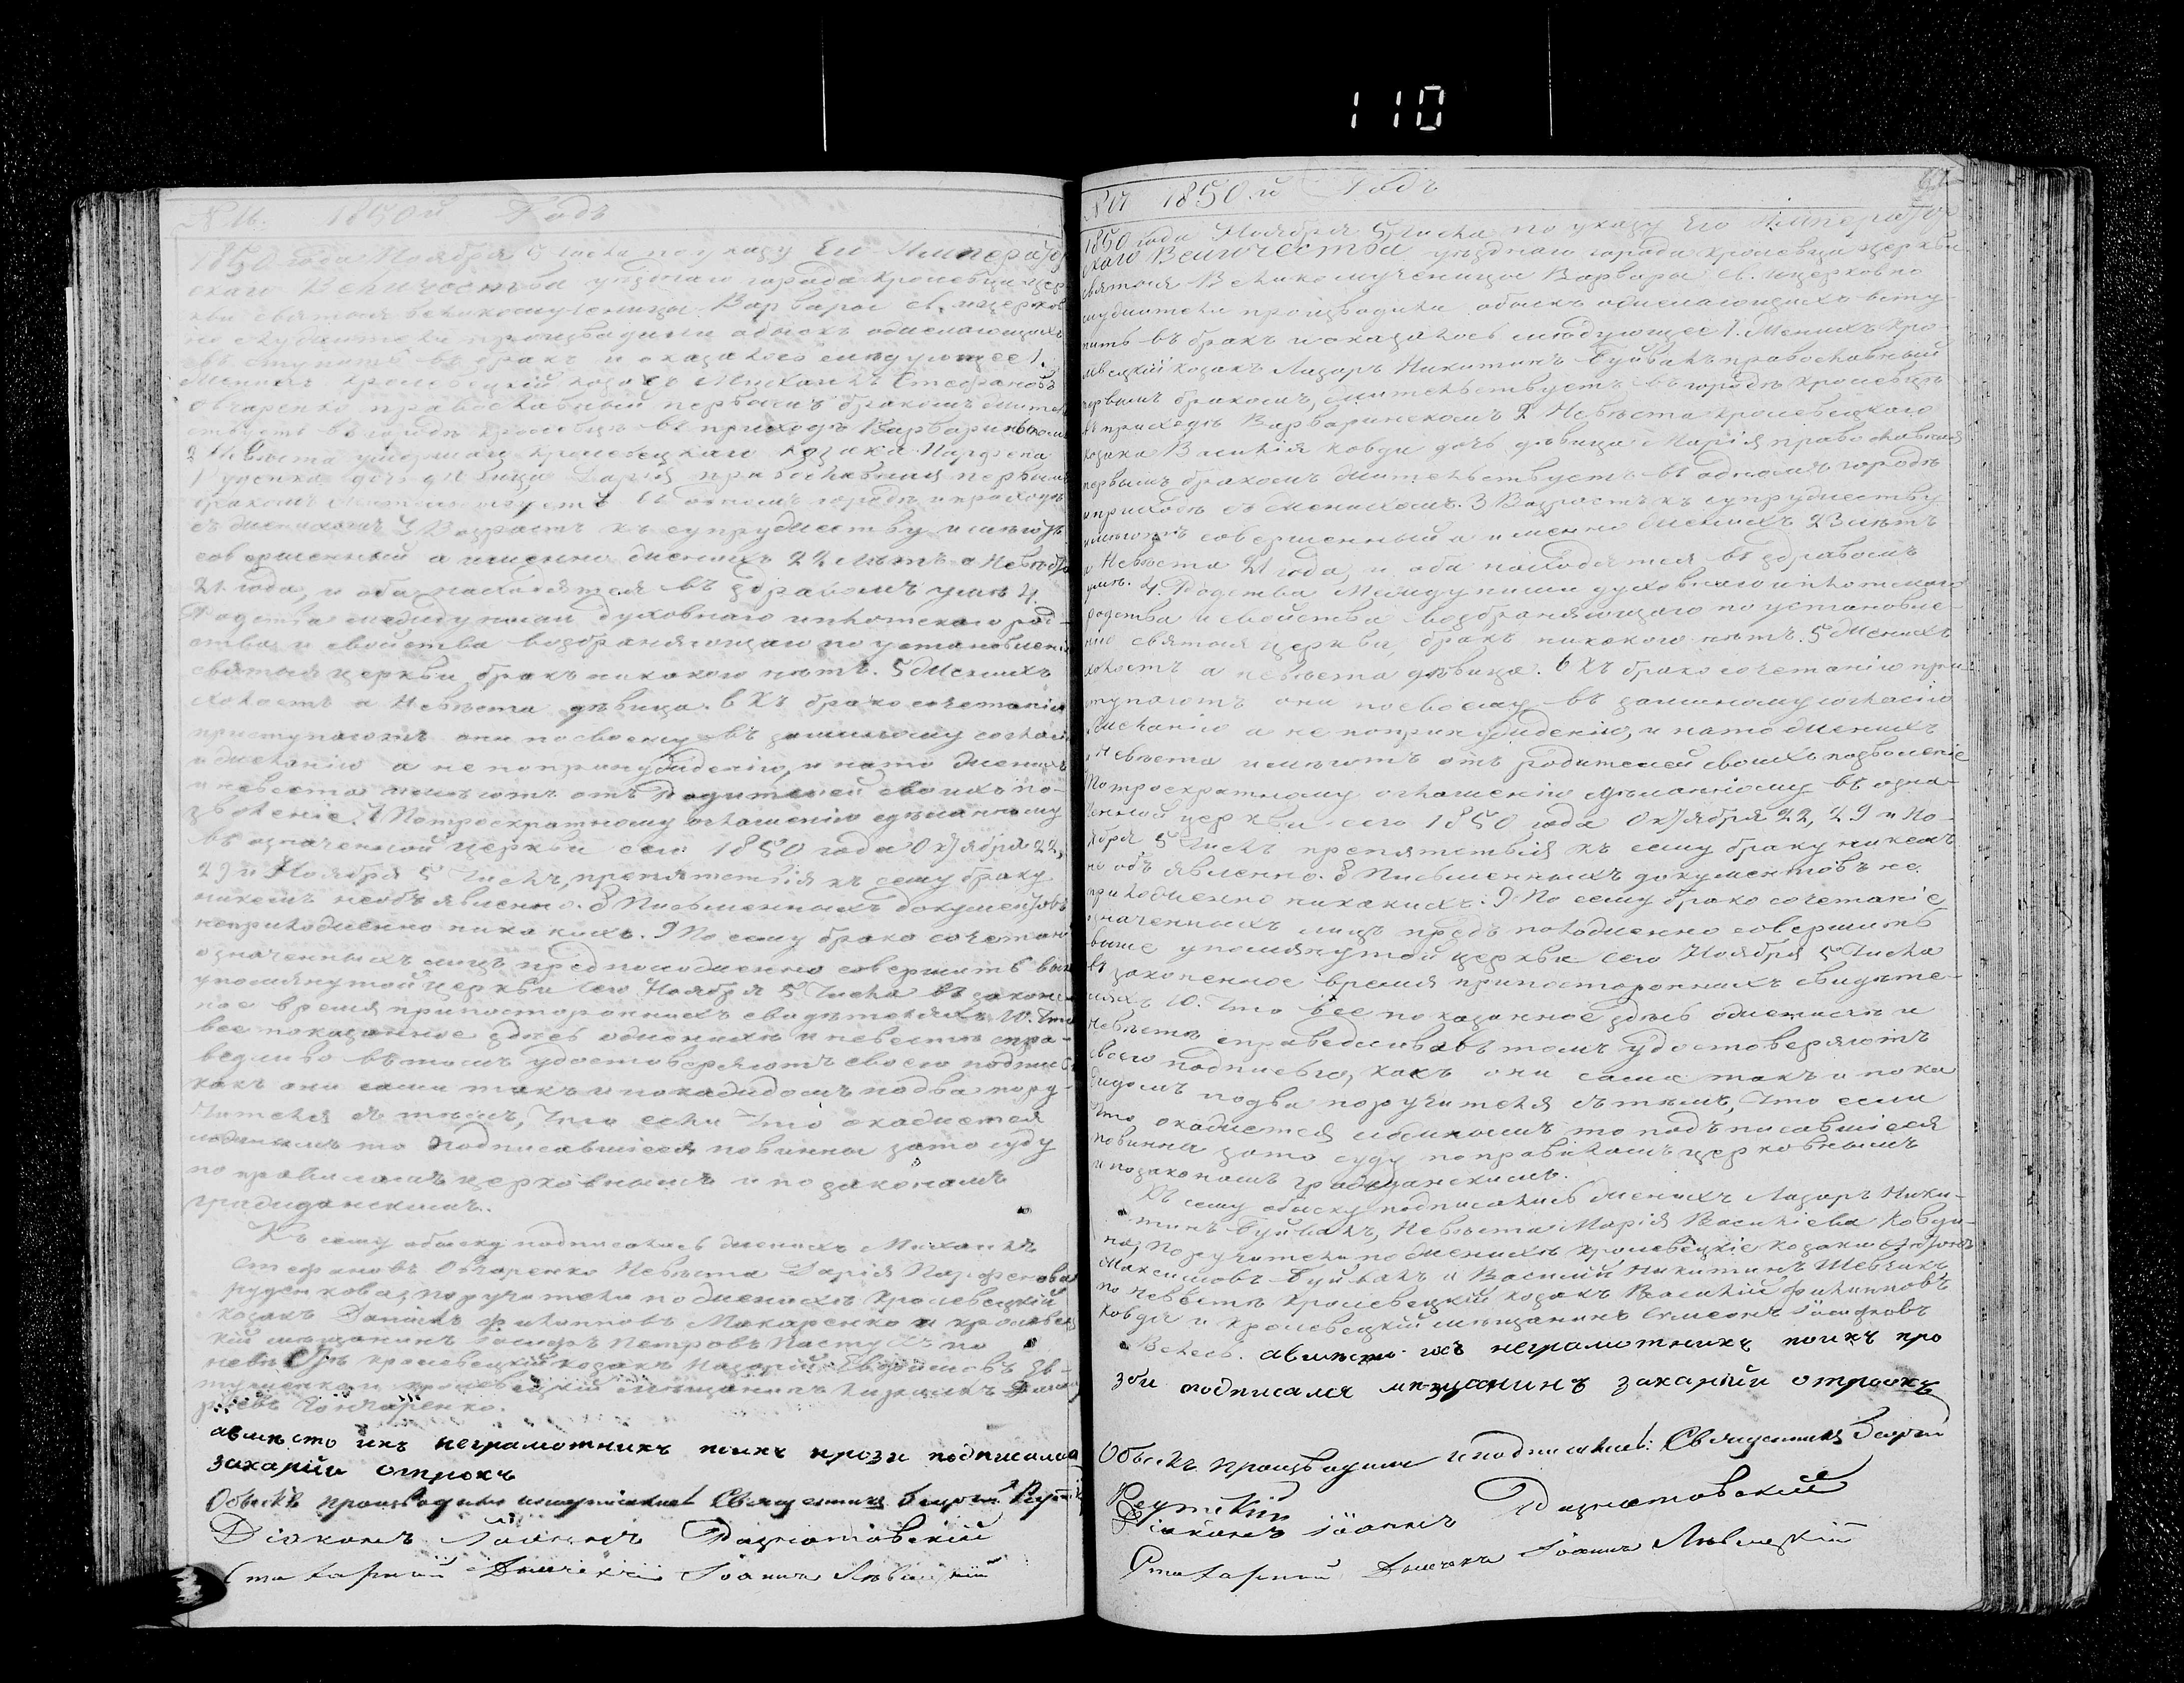 110
№ 16. 1850й Годъ
1850 года Ноября 5 числа по указу Его Император
скаго Величества уѣзднаго города Кролевца цер
кви святыя великомученицы Варвары св. и церков
но служители производили обыскъ о желающихъ
въ ступить въ бракъ и оказалось слѣдующее 1.
Женихъ Кролевецкій козакъ Михаилъ Стефановъ
Овчаренко православный первымъ бракомъ жител
ствуетъ въ городѣ Кролевцѣ въ приходѣ Варваринском
2 Невѣста Кролевецкаго козака Парфена
Руденка дочь дѣвица Дарія православная первымъ
бракомъ жительствуетъ въ одномъ городѣ и приходѣ
съ женихомъ 3 Возрастъ къ супружеству имѣютъ
совершенный а именно женихъ 22 лѣтъ а Невѣста
21 года, и оба находятся въ здравомъ умѣ 4.
Родства между ними духовнаго и плотскаго род-
ства и свойства возбраняющаго по установленію
святыя церкви бракъ никакого нѣтъ. 5 Женихъ
холостъ а Невѣста дѣвица. 6 Къ бракосочетанію
приступаютъ они по своему въ заимному согласію
и желанію а не по принужденію, и на то женихъ
и невѣста имѣютъ отъ Родителей своихъ по-
зволеніе. 7 По троекратному оглашенію сдѣланному
въ означенной церкви сего 1850 года Октября 22,
29 и Ноября 5 Числъ, препятствія къ сему браку
никемъ необъявленно. 8 Письменныхъ документовъ
неприложенно никакихъ. 9 По сему брако сочетаніе
означенныхъ лицъ предположенно совершить въ выше
упомянутой церкви сего Ноября 5 Числа въ закон
ное время при постороннихъ свидѣтеляхъ 10. Что
все показанное здѣсь о женихѣ и невѣстѣ спра-
ведливо въ томъ удостоверяютъ своею подписью
какъ они сами такъ и по каждомъ по два пору-
чителя съ тѣмъ, что если что окажется
ложнымъ то подписавшіеся повинны за то суду
по правиламъ церковнымъ и по законамъ
гражданскимъ.
Къ сему обыску подписались женихъ Михаилъ
Стефановъ Овчаренко Невѣста Дарія Парфенова
Руденкова, поручители по женихѣ Кролевецкій
козакъ Данілъ Филипповъ Макаренко и кролевец
кій мѣщанинъ Іосифъ Петровъ Пастухъ по
невѣстѣ кролевецкій козакъ Назарій
и кролевецкій мѣщанинъ
Гончаренко.
авместо ихъ неграмотнихъ поихъ прозби подписался
захарiи отрокъ
Обыскъ производили и подписали Священникъ Георгій Реутскій
Діаконъ Іоаннъ Разматовскій
Стихарный Дьячекъ Іоаннъ Лѣвицкій
№ 17 1850.й Годъ
1850 года Ноября 5 Числа по указу Его Император
скаго Величества уѣзднаго города Кролевца церкви
святыя Великомученицы Варвары св. и церковно
служители производили обыскъ о желающихъ всту-
пить въ бракъ и оказалось слѣдующее 1. Женихъ Кро-
левецкій козакъ Лазарь Никитинъ Буйвалъ православный
первымъ бракомъ, жительствуетъ въ городѣ Кролевцѣ
въ приходѣ Варваринскомъ 2 Невѣста Кролевецкаго
козака Василія Ковди дочь дѣвица Марія православная
первымъ бракомъ жительствуетъ въ одномъ городѣ
и приходѣ съ женихомъ. 3 Возрастъ къ супружеству
имѣютъ совершенный а именно Женихъ 23 лѣтъ
а Невѣста 21 года, и оба находятся въ здравомъ
умѣ. 4. Родства между ними духовнаго и плотскаго
родства и свойства возбраняющаго по установле-
нію святыя церкви бракъ никакого нѣтъ. 5 Женихъ
холостъ а невѣста дѣвица. 6 Къ брако сочетанію при-
ступаютъ они по своему въ заимному согласію
и желанію а не по принужденію, и на то женихъ
и Невѣста имѣютъ отъ родителей своихъ позволеніе
По троекратному оглашенію сдѣланному въ озна-
ченной церкви сего 1850 года Октября 22, 29 и Но-
ября 5 Числъ препятствія къ сему браку никемъ
не объявленно. 8 Письменныхъ документовъ не
приложенно никакихъ. 9 По сему брако сочетаніе
означенныхъ лицъ предъ положенно совершить
въ выше упомянутой церкви сего Ноября 5 Числа
въ законное время при постороннихъ свидѣте-
ляхъ 10. Что все показанное здѣсь о женихѣ и
невѣстѣ справедливо въ томъ удостоверяютъ
своею подписью, какъ они сами такъ и по ка
ждомъ по два поручителя съ тѣмъ, что если
что окажется ложнымъ то подъписавшіеся
повинны за то суду по правиламъ церковнымъ
и по законамъ гражданскимъ.
Къ сему обыску подписались женихъ Лазарь Ники-
тинъ Буйвалъ, Невѣста Марія Василіева Ковди-
на, Поручители по женихѣ кролевецкіе козаки
Максимовъ Буйвалъ и Василій Никитинъ Шевчикъ
по Невѣстѣ Кролевецкій козакъ Василій Филипповъ
Ковда и Кролевецкій мѣщанинъ Симеонъ
авместо ихъ неграмотнихъ поихъ про
зби подписался мѣщанинъ захарiи отрокъ
Обыскъ производили и подписались: Священникъ Георгій
Реутскій
Діаконъ Іоаннъ Разматовскій
Стихарный Дьячекъ Іоаннъ Лѣвицкій